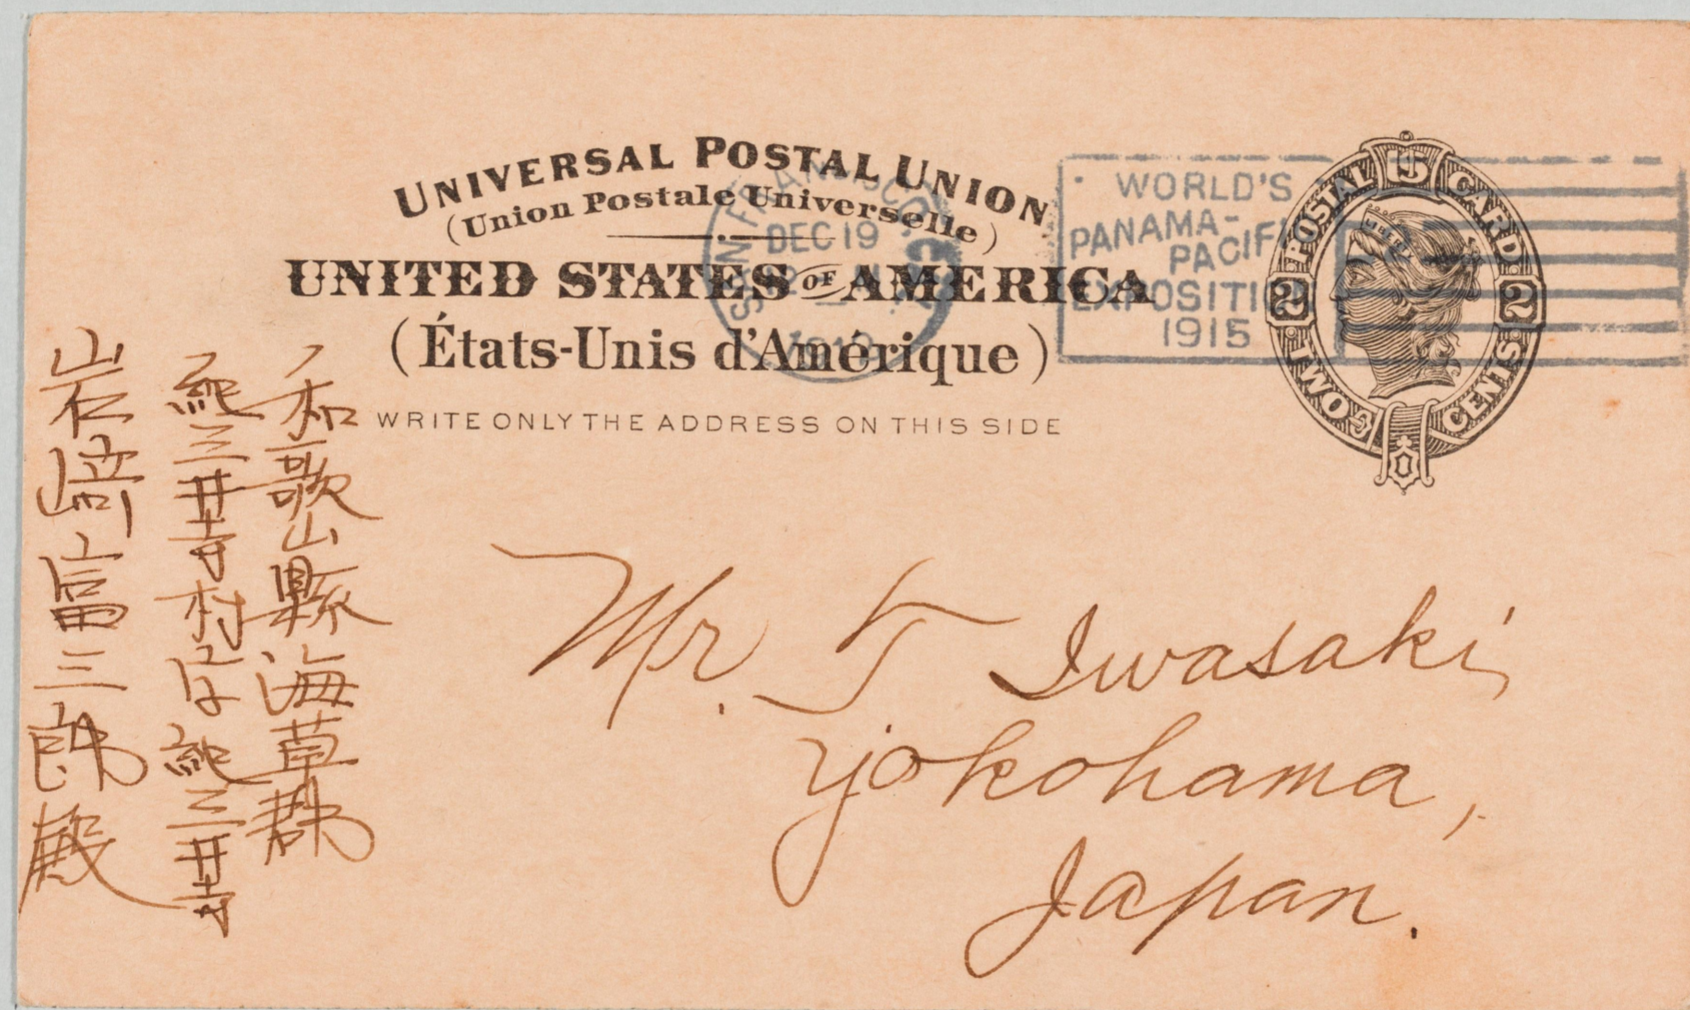 UNIVERSAL POSTAL UNION
(Union Postale Universelle)
UNITED STATES OF AMERICA
(États-Unis d'Amérique)
WRITE ONLY THE ADDRESS ON THIS SIDE
SAN FRANCISCO, CAL.
DEC 19
WORLD'S
PANAMA-
PACIFI
EXPOSITI
1915
U S
POSTAL CARD
2 2
TWO CENTS
LIBERTY
Mr. T Iwasaki,
Yokohama,
Japan.
和歌山縣海草郡
紀三井寺村字紀三井寺
岩﨑富三郎殿